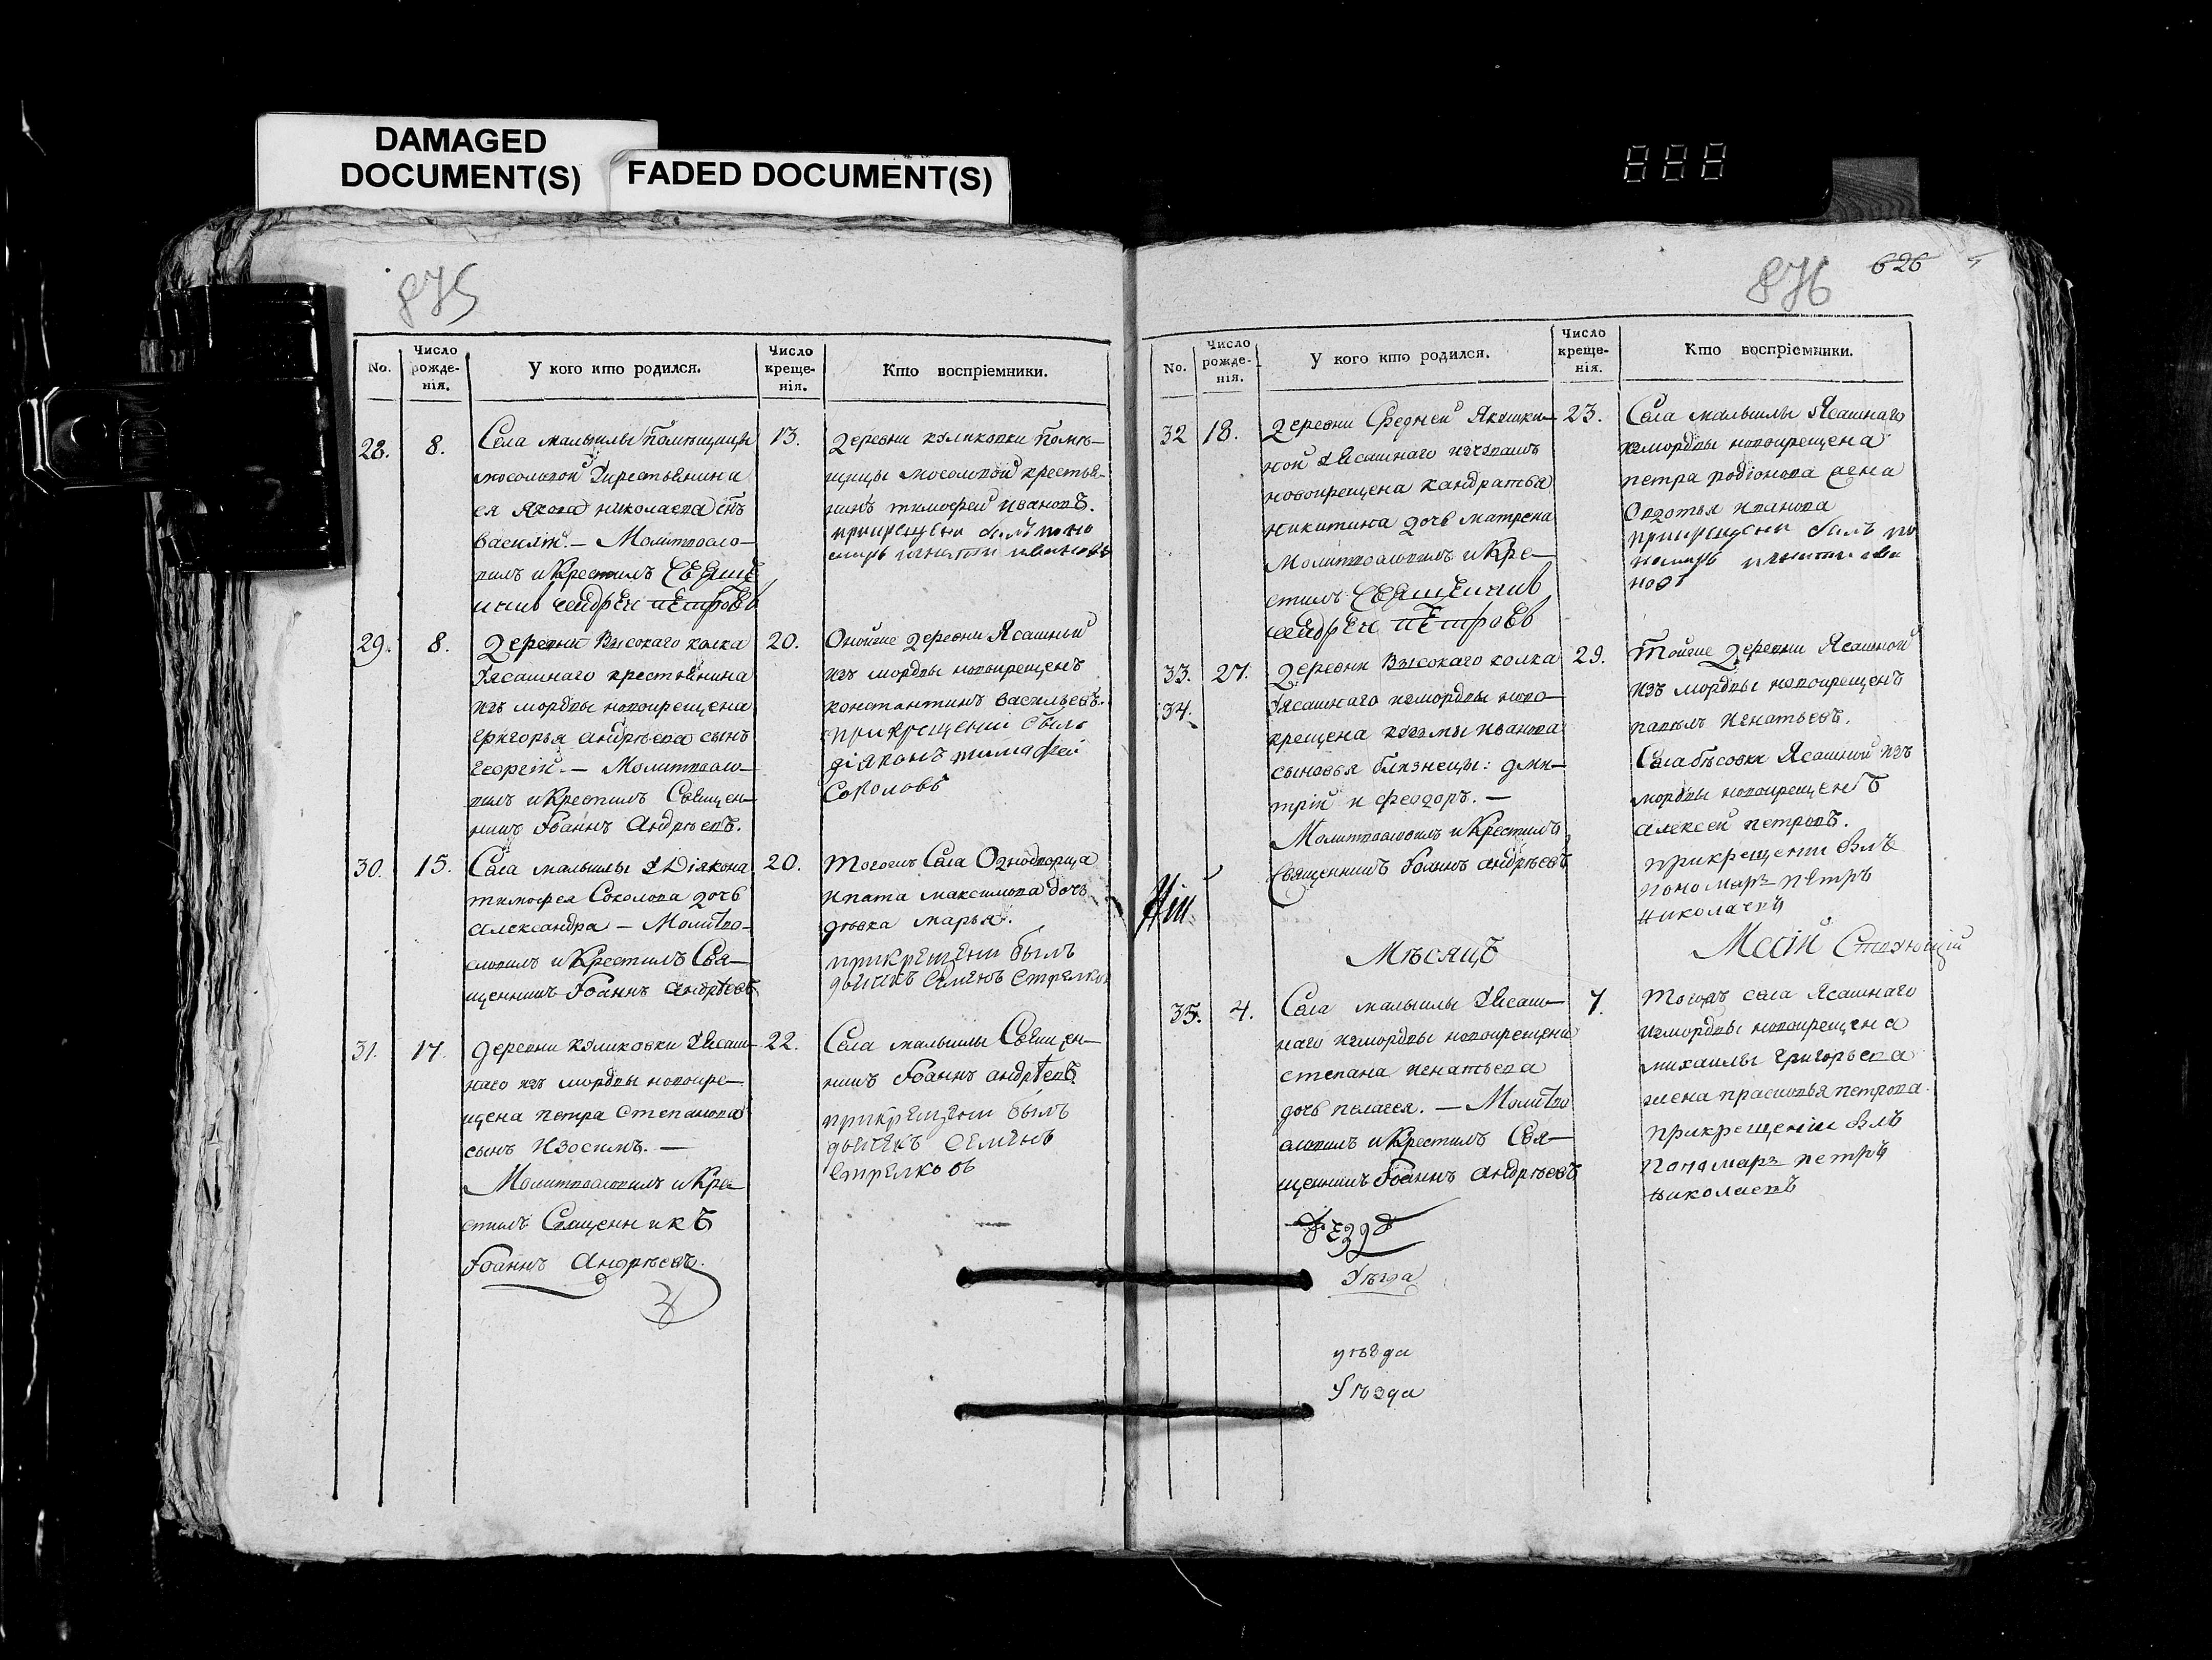 DAMAGED
DOCUMENT(S)
FADED DOCUMENT(S)
888
875
No.
Число рожде-нія.
У кого кто родился.
Число креще-нія.
Кто воспріемники.
28.
8.
Села малыклы Помѣщицы
мосоловой крестьянина
ея Якова николаева снъ
василій. — Молитвосло-
вилъ и Крестилъ Священ
никъ андрей петровъ
13.
деревни куликовки Помѣ-
щицы мосоловой крестья-
нинъ тимофей ивановъ.
при крещении былъ поно
марь игнатий ивановъ
29.
8.
деревни Высокаго колка
ясашнаго крестьянина
изъ мордвы новокрещена
григорья андрѣева сынъ
георгій. — Молитвосло-
вилъ и Крестилъ Священ-
никъ Іоаннъ Андрѣевъ.
20.
Оной же деревни Ясашный
изъ мордвы новокрещенъ
константинъ васильевъ.
при крещении былъ
діяконъ тимафей
Соколовъ
30.
15.
Села малыклы Діякона
тимофея Соколова дочь
александра — Молитво-
словилъ и Крестилъ Свя-
щенникъ Іоаннъ Андрѣевъ
20.
тогожъ Села Однодворца
ипата максимова дочь
дѣвка марья.
при крещени былъ
дьячекъ семенъ стрелков
31.
17.
деревни куликовки Ясаш-
наго изъ мордвы новокре-
щена петра степанова
сынъ Изосимъ. —
Молитвословилъ и Кре-
стилъ Священникъ
Іоаннъ Андрѣевъ.
22.
Села малыклы Священ-
никъ Іоаннъ андрѣевъ
при крещени былъ
дьячекъ семенъ
стрелковъ
876
626
No.
Число рожде-нія.
У кого кто родился.
Число креще-нія.
Кто воспріемники.
32
18.
деревни Средней Якушки-
ной Ясашнаго изъ чувашъ
новокрещена кандратья
никитина дочь матрена
Молитвословилъ и Кре-
стилъ Священникъ
андрей петровъ
23.
Села малыклы Ясашнаго
изъ мордвы новокрещена
петра родіонова жена
Овдотья иванова
при крещени былъ по
номарь игнатий ива
новъ
33.
27.
34.
деревни Высокаго колка
Ясашнаго изъ мордвы ново-
крещена кузмы иванова
сыновья близнецы: дми-
трій и феодоръ. —
Молитвословилъ и Крестилъ
Священникъ Іоаннъ андрѣевъ
29.
той же деревни Ясашной
изъ мордвы новокрещенъ
павелъ игнатьевъ.
Села бѣсовки Ясашной изъ
мордвы новокрещенъ
алексей петровъ.
при крещени былъ
пономарь петръ
николаевъ
Мѣсяцъ
35.
4.
Села малыклы Ясаш-
наго изъ мордвы новокрещена
степана игнатьева
дочь пелагея. — Молитво
словилъ и Крестилъ Свя-
щенникъ Іоаннъ Андрѣевъ
7.
тогожъ села Ясашнаго
изъ мордвы новокрещена
михаилы григорьева
жена прасковья петрова.
при крещеніи былъ
пономарь петръ
николаевъ
Уѣзда
уѣзда
Уѣзда